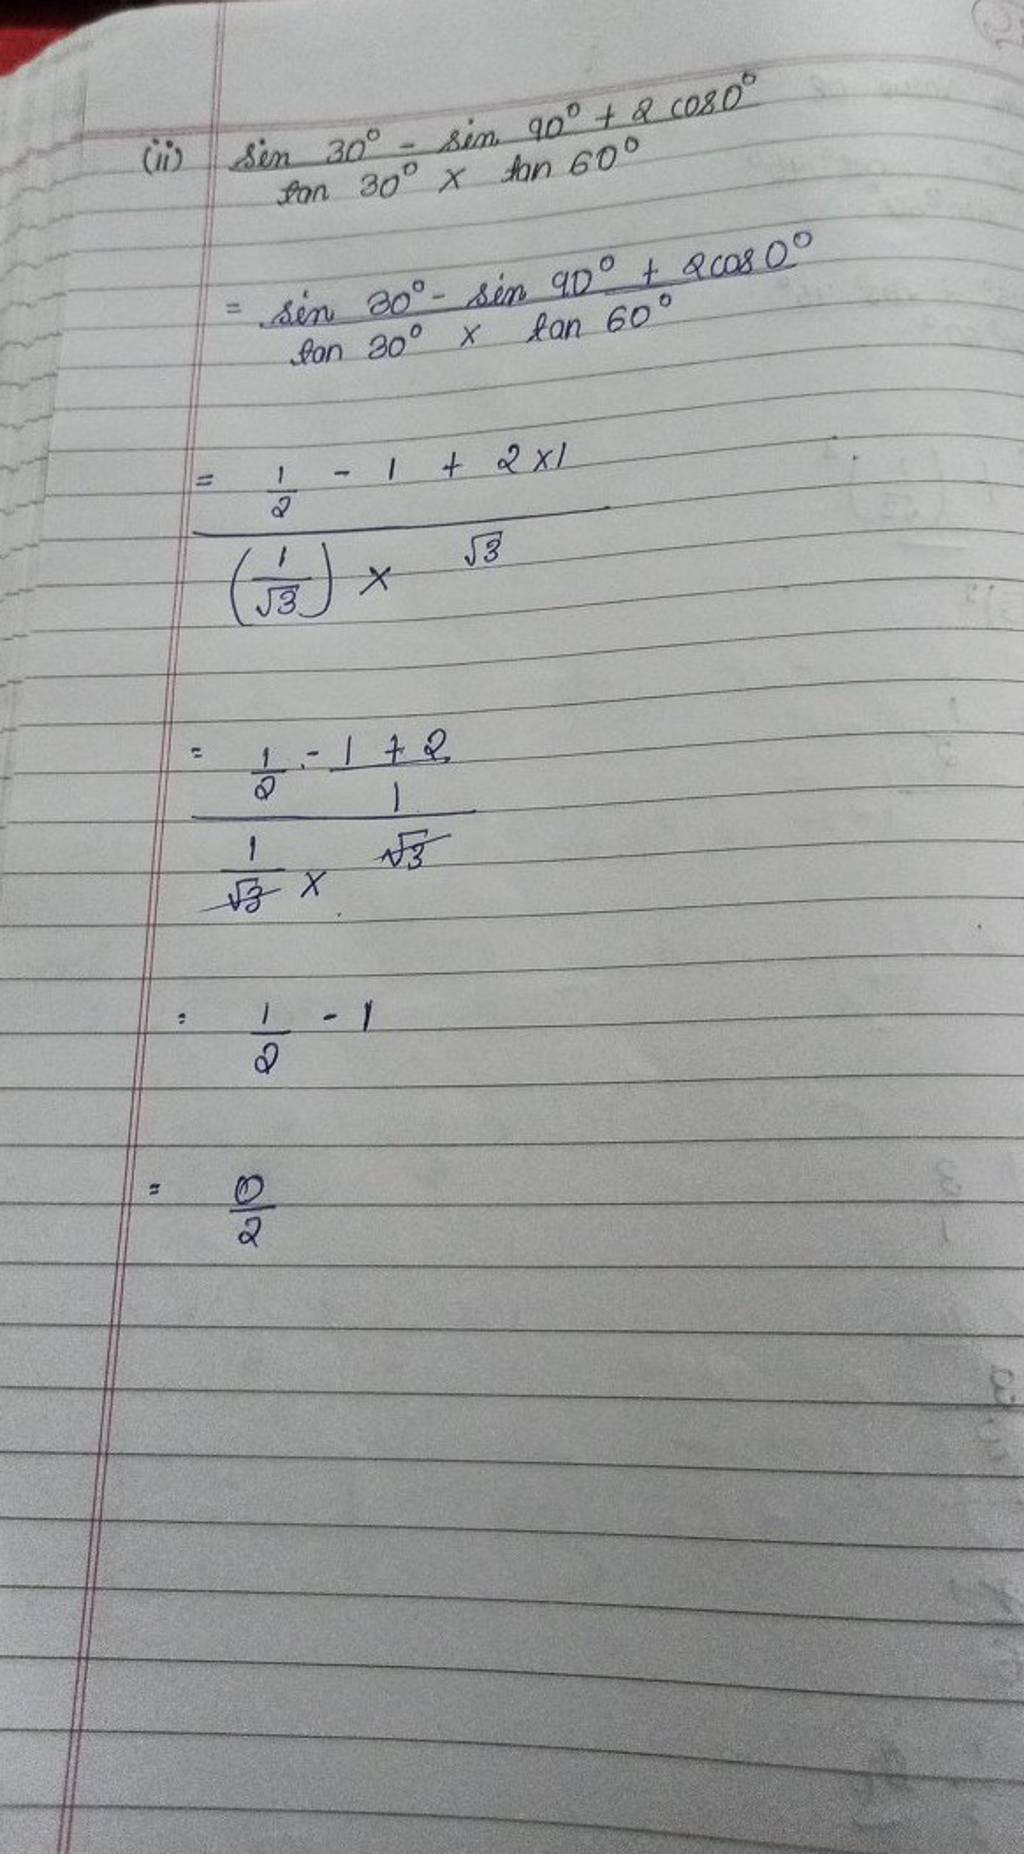 (ii) sin 30° - sin 90° + 2 cos 0°
tan 30° × tan 60°
= sin 30° - sin 90° + 2 cos 0°
tan 30° × tan 60°
= 1/2 - 1 + 2 × 1
(1/√3) × √3
= 1/2 - 1 + 2
1
1/√3 × √3
= 1/2 - 1
= 0/2